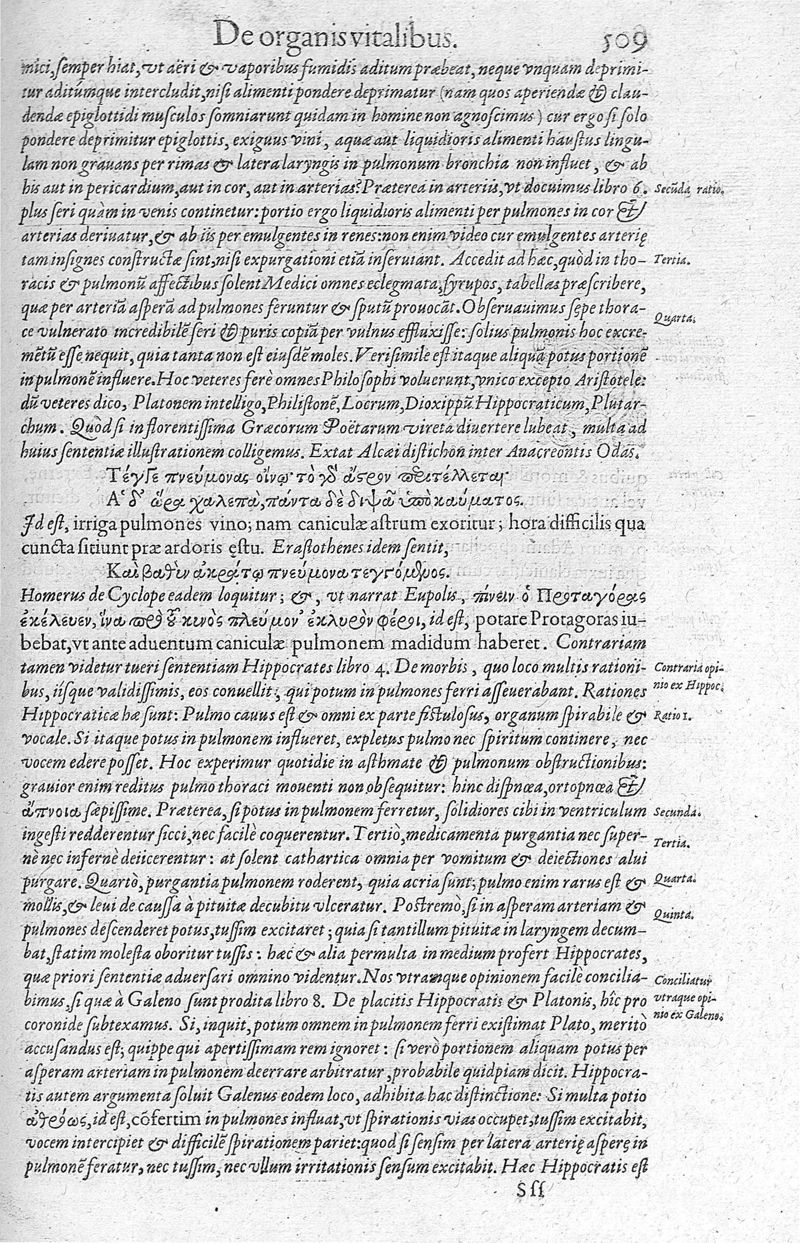 De organis vitalibus. 509
mici, semper hiat, vt aëri & vaporibus fumidis aditum præbeat, neque vnquam deprimi-
tur aditúmque intercludit, nisi alimenti pondere deprimatur (nam quos aperiendæ & clau-
dendæ epiglottidi musculos somniarunt quidam in homine non agnoscimus) cur ergo si solo
pondere deprimitur epiglottis, exiguus vini, aquæ aut liquidioris alimenti haustus lingu-
lam non grauans per rimas & latera laryngis in pulmonum bronchia non influet, & ab
his aut in pericardium, aut in cor, aut in arterias? Præterea in arteriis, vt docuimus libro 6. Secūda ratio.
plus seri quàm in venis continetur: portio ergo liquidioris alimenti per pulmones in cor &
arterias deriuatur, & ab iis per emulgentes in renes: non enim video cur emulgentes arterię
tam insignes constructæ sint, nisi expurgationi etiā inseruiant. Accedit ad hæc, quòd in tho- Tertia.
racis & pulmonū affectibus solent Medici omnes eclegmata, syrupos, tabellas præscribere,
quæ per arteriā asperā ad pulmones feruntur & sputū prouocāt. Obseruauimus sępe thora- Quarta.
ce vulnerato incredibilē seri & puris copiā per vulnus effluxisse: solius pulmonis hoc excre-
mētū esse nequit, quia tanta non est eiusdē moles. Verisimile est itaque aliquā potus portionē
in pulmonē influere. Hoc veteres ferè omnes Philosophi voluerunt, vnico excepto Aristotele:
dū veteres dico, Platonem intelligo, Philistionē, Locrum, Dioxippū Hippocraticum, Plutar-
chum. Quòd si in florentissima Græcorum Poëtarum vireta diuertere lubeat, multa ad
huius sententiæ illustrationem colligemus. Extat Alcæi distichon inter Anacreontis Odas.
Τέγγε πνεύμονας οἴνῳ· τὸ γὰρ ἄστρον περιτέλλεται·
Ἁ δ᾽ ὥρα χαλεπὰ, πάντα δὲ διψᾷ ὑπὸ καύματος.
Id est, irriga pulmones vino; nam caniculæ astrum exoritur; hora difficilis qua
cuncta sitiunt præ ardoris ęstu. Erastothenes idem sentit,
Καὶ βαθὺν ἀκρήτῳ πνεύμονα τεγγόμενος.
Homerus de Cyclope eadem loquitur; &, vt narrat Eupolis, πίνειν ὁ Πρωταγόρας
ἐκέλευεν, ἵνα πρὸ τοῦ κυνὸς πλεύμον᾽ ἔκλυτον φέρῃ, id est, potare Protagoras iu-
bebat, vt ante aduentum caniculæ pulmonem madidum haberet. Contrariam
tamen videtur tueri sententiam Hippocrates libro 4. De morbis, quo loco multis rationi- Contraria opi-
bus, iísque validissimis, eos conuellit, qui potum in pulmones ferri asseuerabant. Rationes nio ex Hippoc.
Hippocraticæ hæ sunt: Pulmo cauus est & omni ex parte fistulosus, organum spirabile & Ratio 1.
vocale. Si itaque potus in pulmonem influeret, expletus pulmo nec spiritum continere, nec
vocem edere posset. Hoc experimur quotidie in asthmate & pulmonum obstructionibus:
grauior enim reditus pulmo thoraci mouenti non obsequitur: hinc dispnœa, ortopnœa &
ἄπνοια sæpissime. Præterea, si potus in pulmonem ferretur, solidiores cibi in ventriculum Secunda.
ingesti redderentur sicci, nec facilè coquerentur. Tertiò, medicamenta purgantia nec super- Tertia.
nè nec infernè deiicerentur: at solent cathartica omnia per vomitum & deiectiones alui
purgare. Quartò, purgantia pulmonem roderent, quia acria sunt; pulmo enim rarus est & Quarta.
mollis, & leui de caussa à pituitæ decubitu vlceratur. Postremò, si in asperam arteriam & Quinta.
pulmones descenderet potus, tussim excitaret; quia si tantillum pituitæ in laryngem decum-
bat, statim molesta oboritur tussis: hæc & alia permulta in medium profert Hippocrates,
quæ priori sententiæ aduersari omnino videntur. Nos vtramque opinionem facilè concilia- Conciliatur
bimus, si quæ à Galeno sunt prodita libro 8. De placitis Hippocratis & Platonis, hîc pro vtraque opi-
coronide subtexamus. Si, inquit, potum omnem in pulmonem ferri existimat Plato, meritò nio ex Galeno.
accusandus est; quippe qui apertissimam rem ignoret: si verò portionem aliquam potus per
asperam arteriam in pulmonem deerrare arbitratur, probabile quidpiam dicit. Hippocra-
tis autem argumenta soluit Galenus eodem loco, adhibita hac distinctione: Si multa potio
ἀθρόως, id est, cōfertim in pulmones influat, vt spirationis vias occupet, tussim excitabit,
vocem intercipiet & difficilē spirationem pariet: quod si sensim per latera arterię asperę in
pulmonē feratur, nec tussim, nec vllum irritationis sensum excitabit. Hæc Hippocratis est
Sſſ